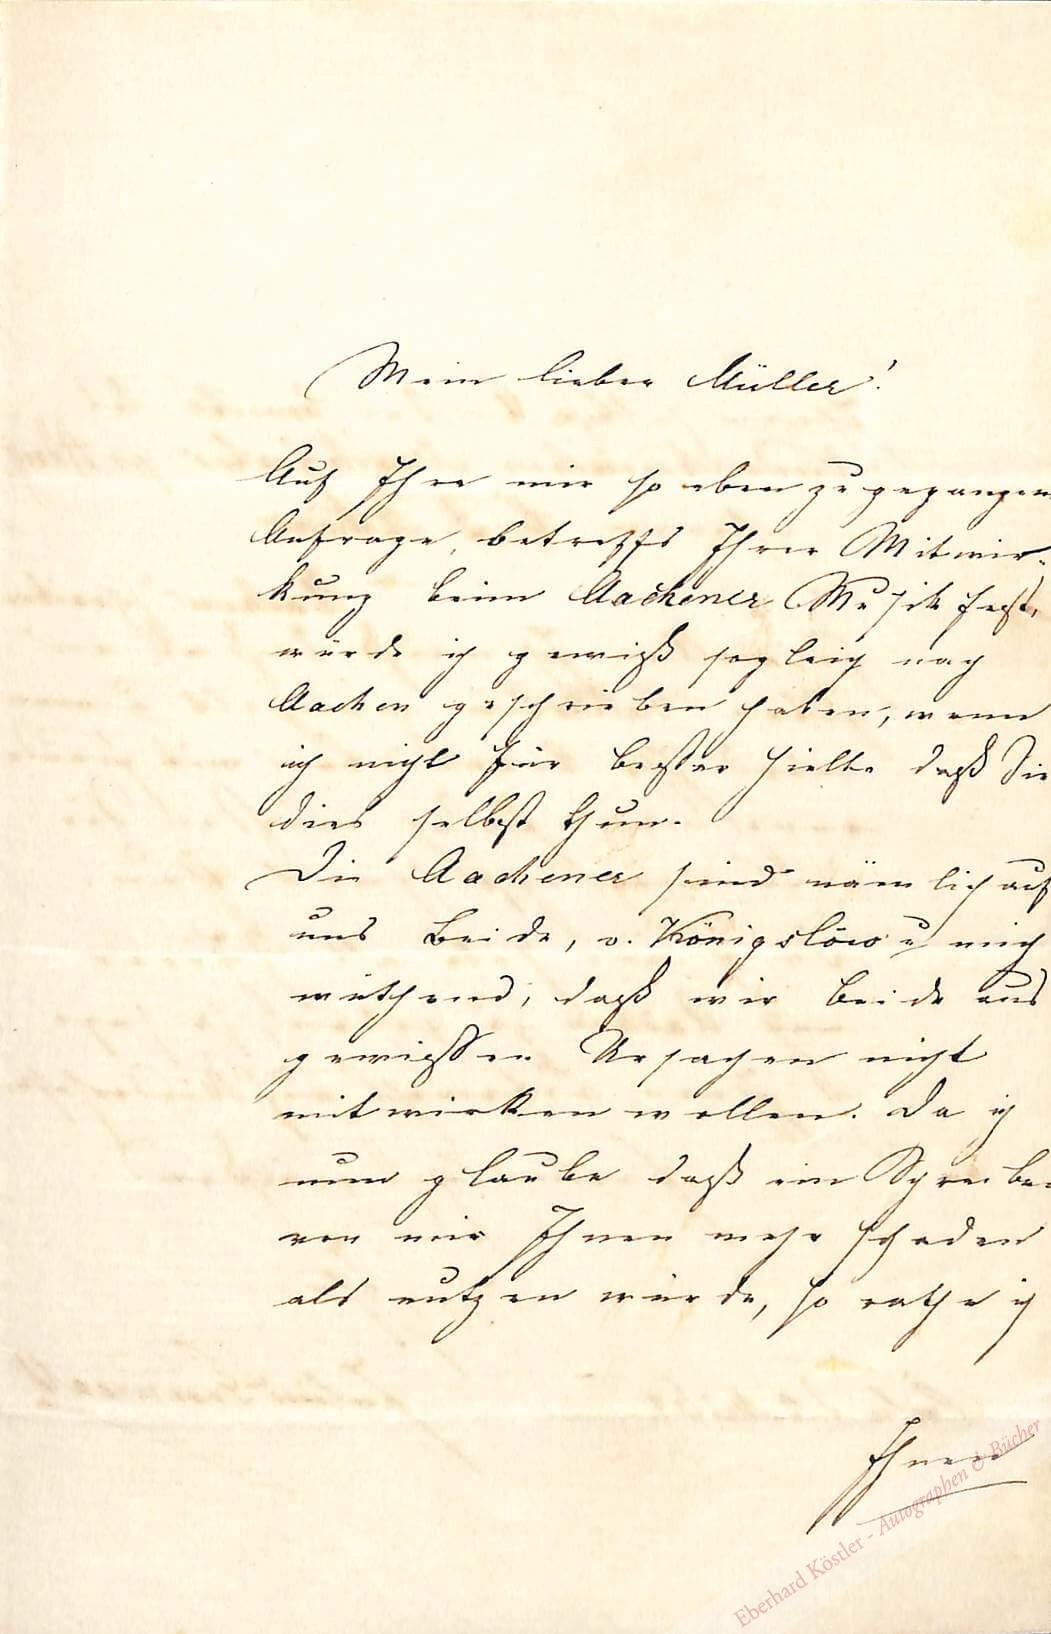 Mein lieber Müller!
Auf Ihre mir so eben zugegangene
Anfrage, betreffs Ihrer Mitwir-
kung beim Aachener Musikfest,
würde ich gewiß sogleich nach
Aachen geschrieben haben, wenn
ich nicht für besser hielte daß Sie
dies selbst thun.
Die Aachener sind nämlich auf
uns Beide, v. Königslöw u mich
wüthend, daß wir beide aus
gewissen Ursachen nicht
mitwirken wollen. Da ich
nun glaube daß ein Schreiben
von mir Ihnen mehr schaden
als nutzen würde, so rathe ich
Ihnen
Eberhard Köstler - Autographen & Bücher